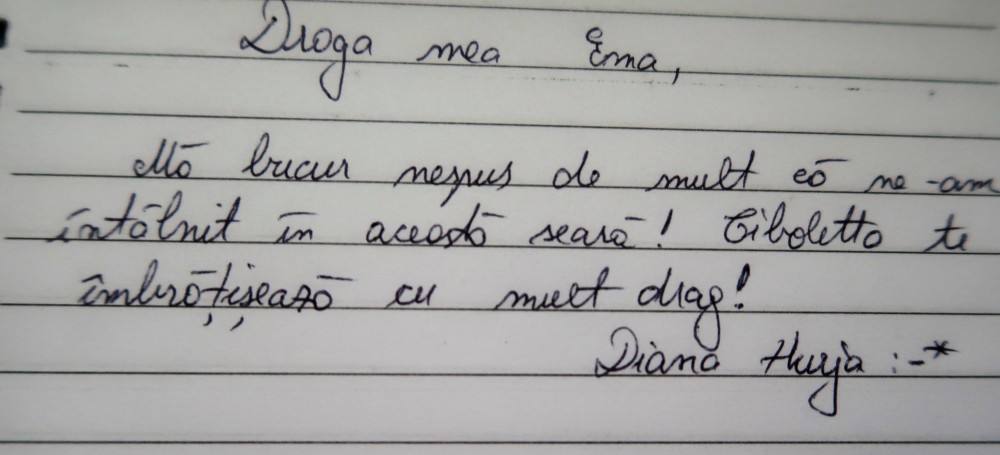 Draga mea Ema,
Mă bucur nespus de mult că ne-am
întâlnit în această seară! Ciboletta te
îmbrățișează cu mult drag!
Diana Hurja :-*